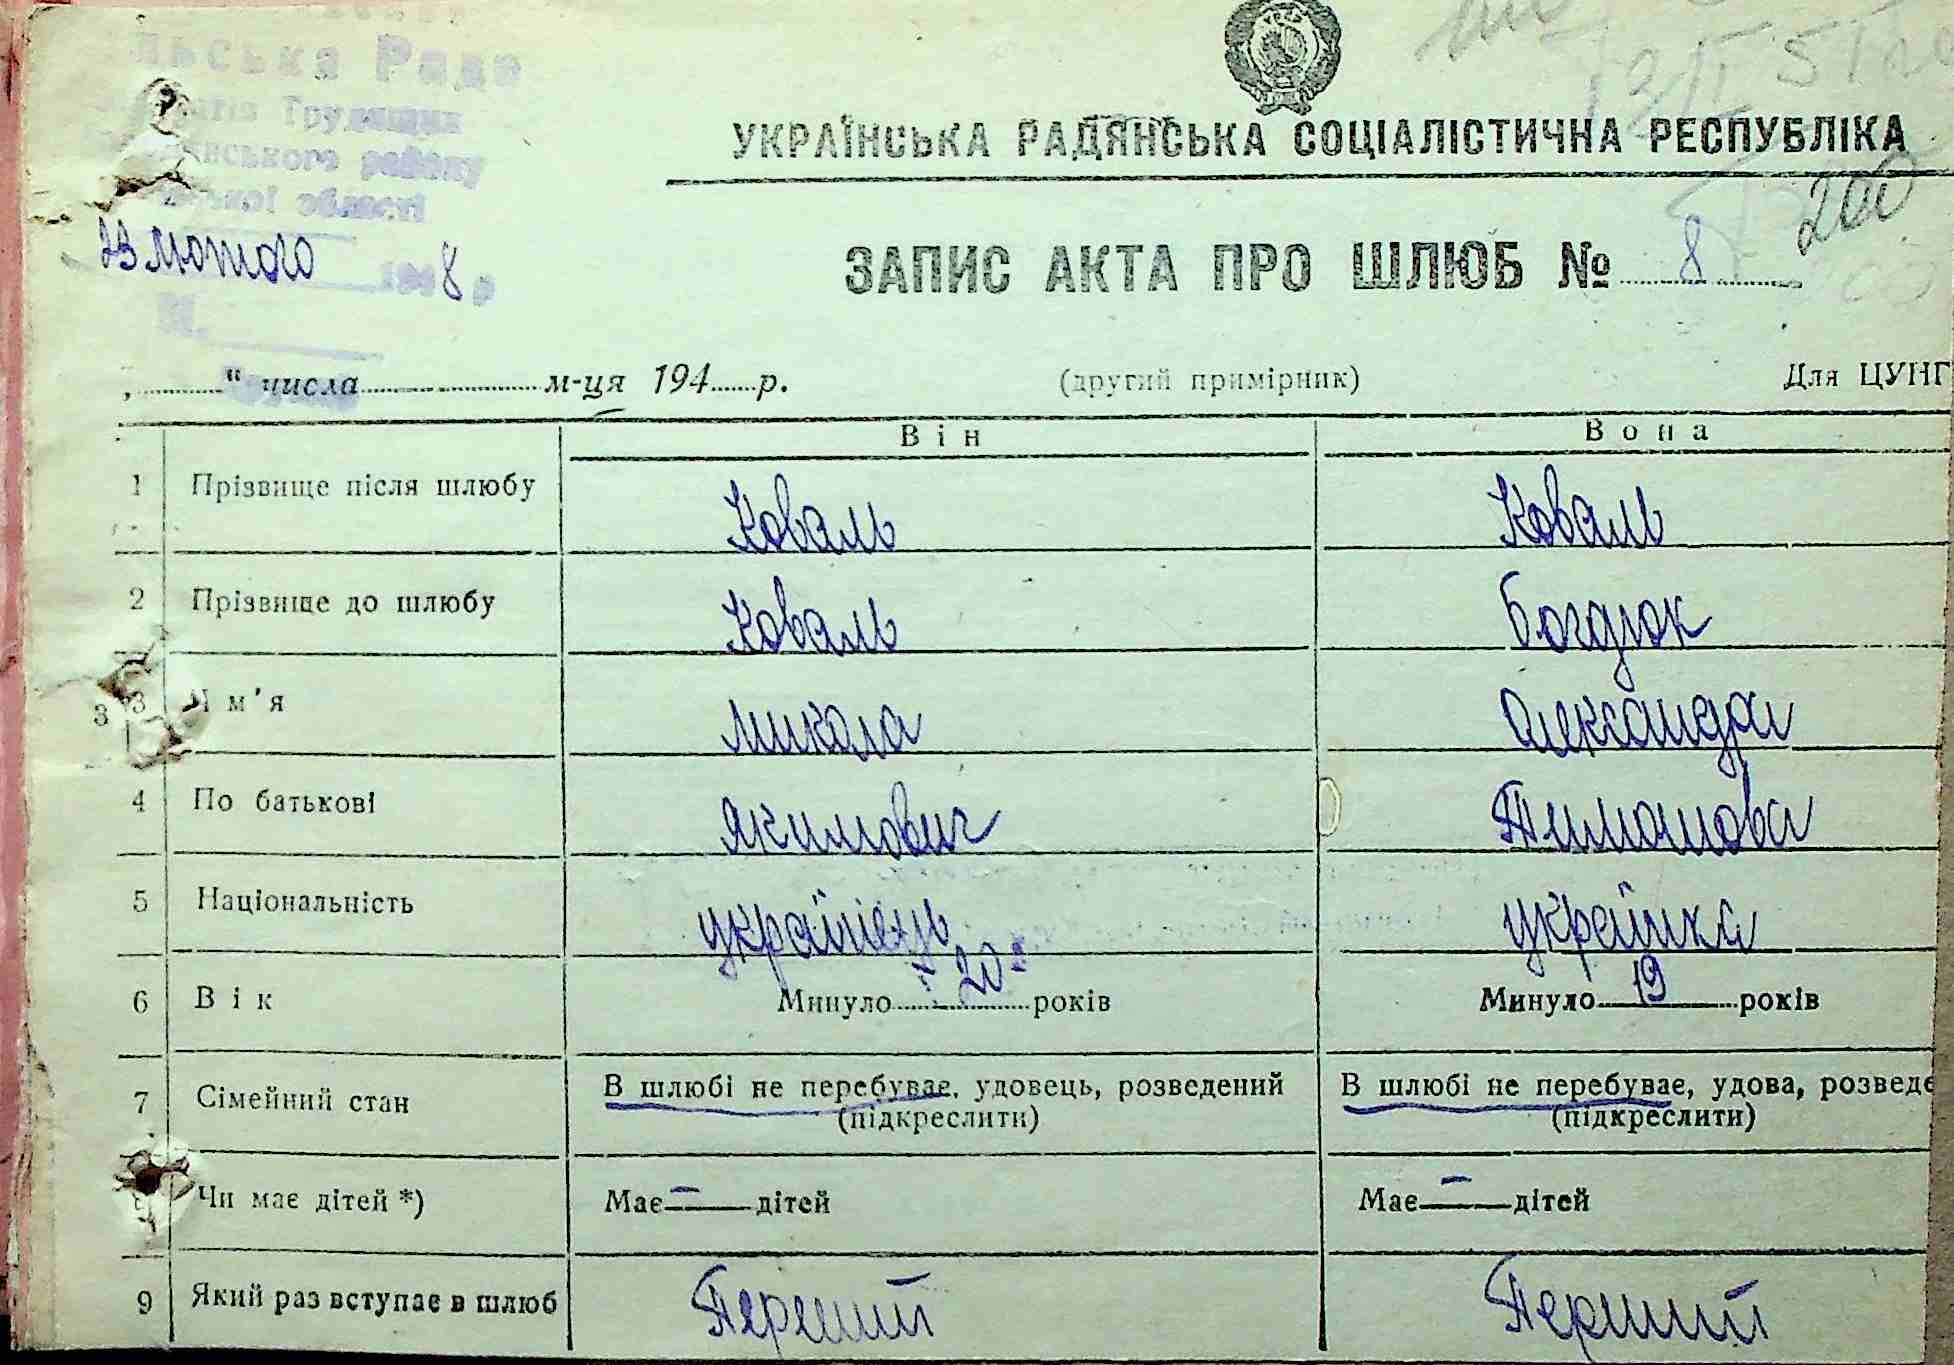 Рада
Трудящих
району
області
23 лютого 1948 р
УКРАЇНСЬКА РАДЯНСЬКА СОЦІАЛІСТИЧНА РЕСПУБЛІКА
200
ЗАПИС АКТА ПРО ШЛЮБ № 8
„ “ числа м-ця 194 р. (другий примірник) Для ЦУНГ
Він Вона
1 Прізвище після шлюбу Коваль Коваль
2 Прізвище до шлюбу Коваль Богдюк
3 3 Им'я Микола Олександра
4 По батькові Якимович Тимошова
5 Національність українець українка
6 Вік Минуло 20 років Минуло 19 років
7 Сімейний стан В шлюбі не перебуває, удовець, розведений В шлюбі не перебуває, удова, розведе
(підкреслити) (підкреслити)
Чи має дітей *) Має — дітей Має — дітей
9 Який раз вступає в шлюб Перший Перший